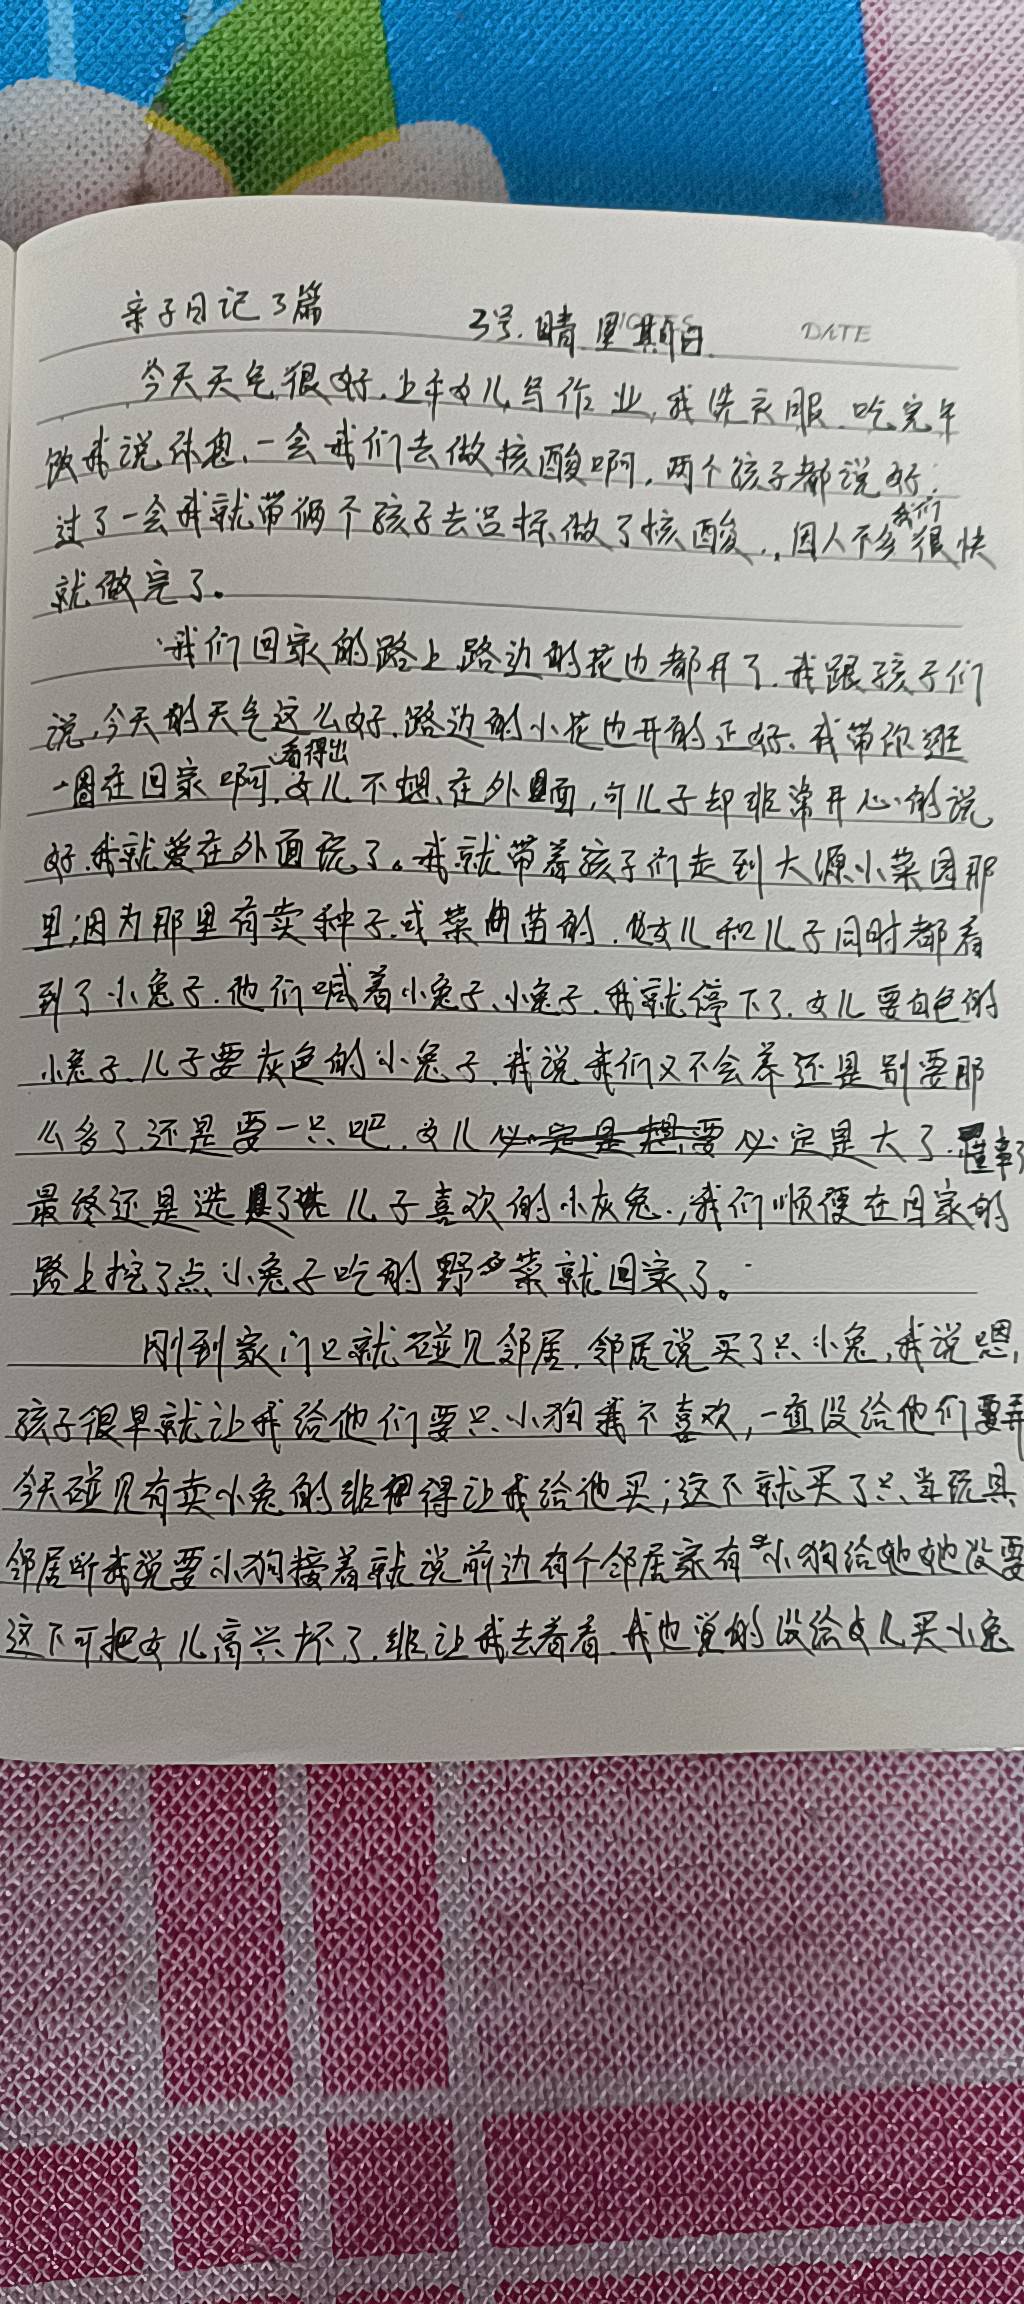 亲子日记3篇 3号.晴 星期日 DATE
今天天气很好.上午女儿写作业,我洗衣服.吃完午
饭我说休息、一会我们去做核酸啊,两个孩子都说好.
过了一会我就带俩个孩子去做了核酸.,因人不多我们很快
就做完了。
我们回家的路上路边的花也都开了.我跟孩子们
说,今天的天气这么好.路边的小花也开的正好.我带你逛
一圈在回家啊.看得出女儿不想、在外面,可儿子却非常开心的说
好.我就爱在外面玩了。我就带着孩子们走到大源小菜园那
里;因为那里有卖种子.或菜苗的.女儿和儿子同时都看
到了小兔子.他们喊着小兔子、小兔子.我就停下了.女儿要白色的
小兔子.儿子要灰色的小兔子.我说我们又不会养还是别要那
么多了.还是要一只吧.女儿必定是想要必定是大了.懂事了
最终还是选了儿子喜欢的小灰兔.,我们顺便在回家的
路上挖了点小兔子吃的野菜就回家了。
刚到家门口就碰见邻居.邻居说买了只小兔,我说嗯,
孩子很早就让我给他们要只小狗我不喜欢,一直没给他们要弄
今天碰见有卖小兔的非得让我给他买;这不就买了只当玩具
邻居听我说要小狗接着就说前边有个邻居家有小狗给她她没要
这下可把女儿高兴坏了.非让我去看看.我也觉的没给女儿买小兔